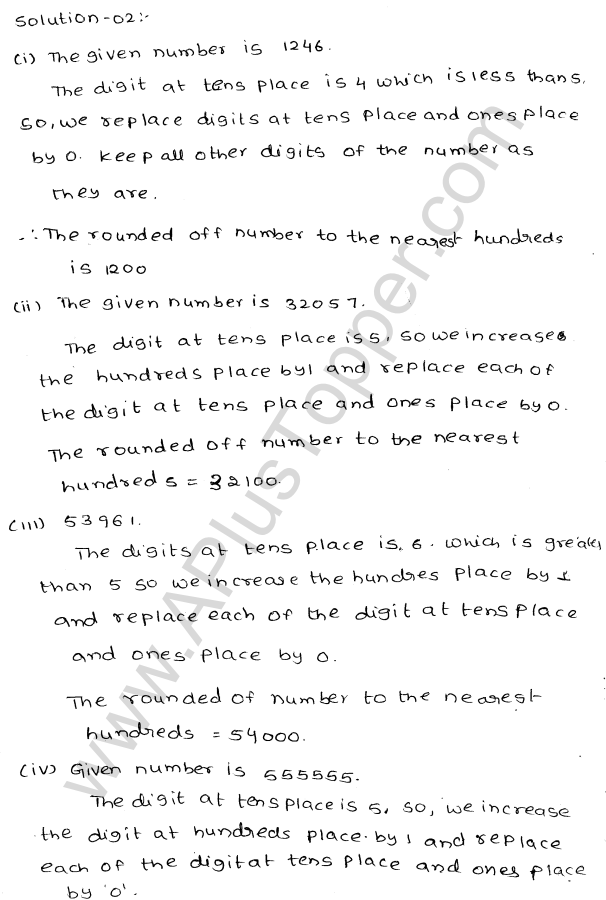 Solution-02:-
(i) The given number is 1246.
The digit at tens place is 4 which is less than 5.
So, we replace digits at tens place and ones place
by 0. Keep all other digits of the number as
they are.
∴ The rounded off number to the nearest hundreds
is 1200
(ii) The given number is 32057.
The digit at tens place is 5, so we increases
the hundreds place by 1 and replace each of
the digit at tens place and ones place by 0.
The rounded off number to the nearest
hundreds = 32100.
(iii) 53961.
The digits at tens place is, 6. which is greater
than 5 so we increase the hundres place by 1
and replace each of the digit at tens place
and ones place by 0.
The rounded of number to the nearest
hundreds = 54000.
(iv) Given number is 555555.
The digit at tens place is 5, so, we increase
the digit at hundreds place by 1 and replace
each of the digit at tens place and ones place
by '0'.
www.APlusTopper.com